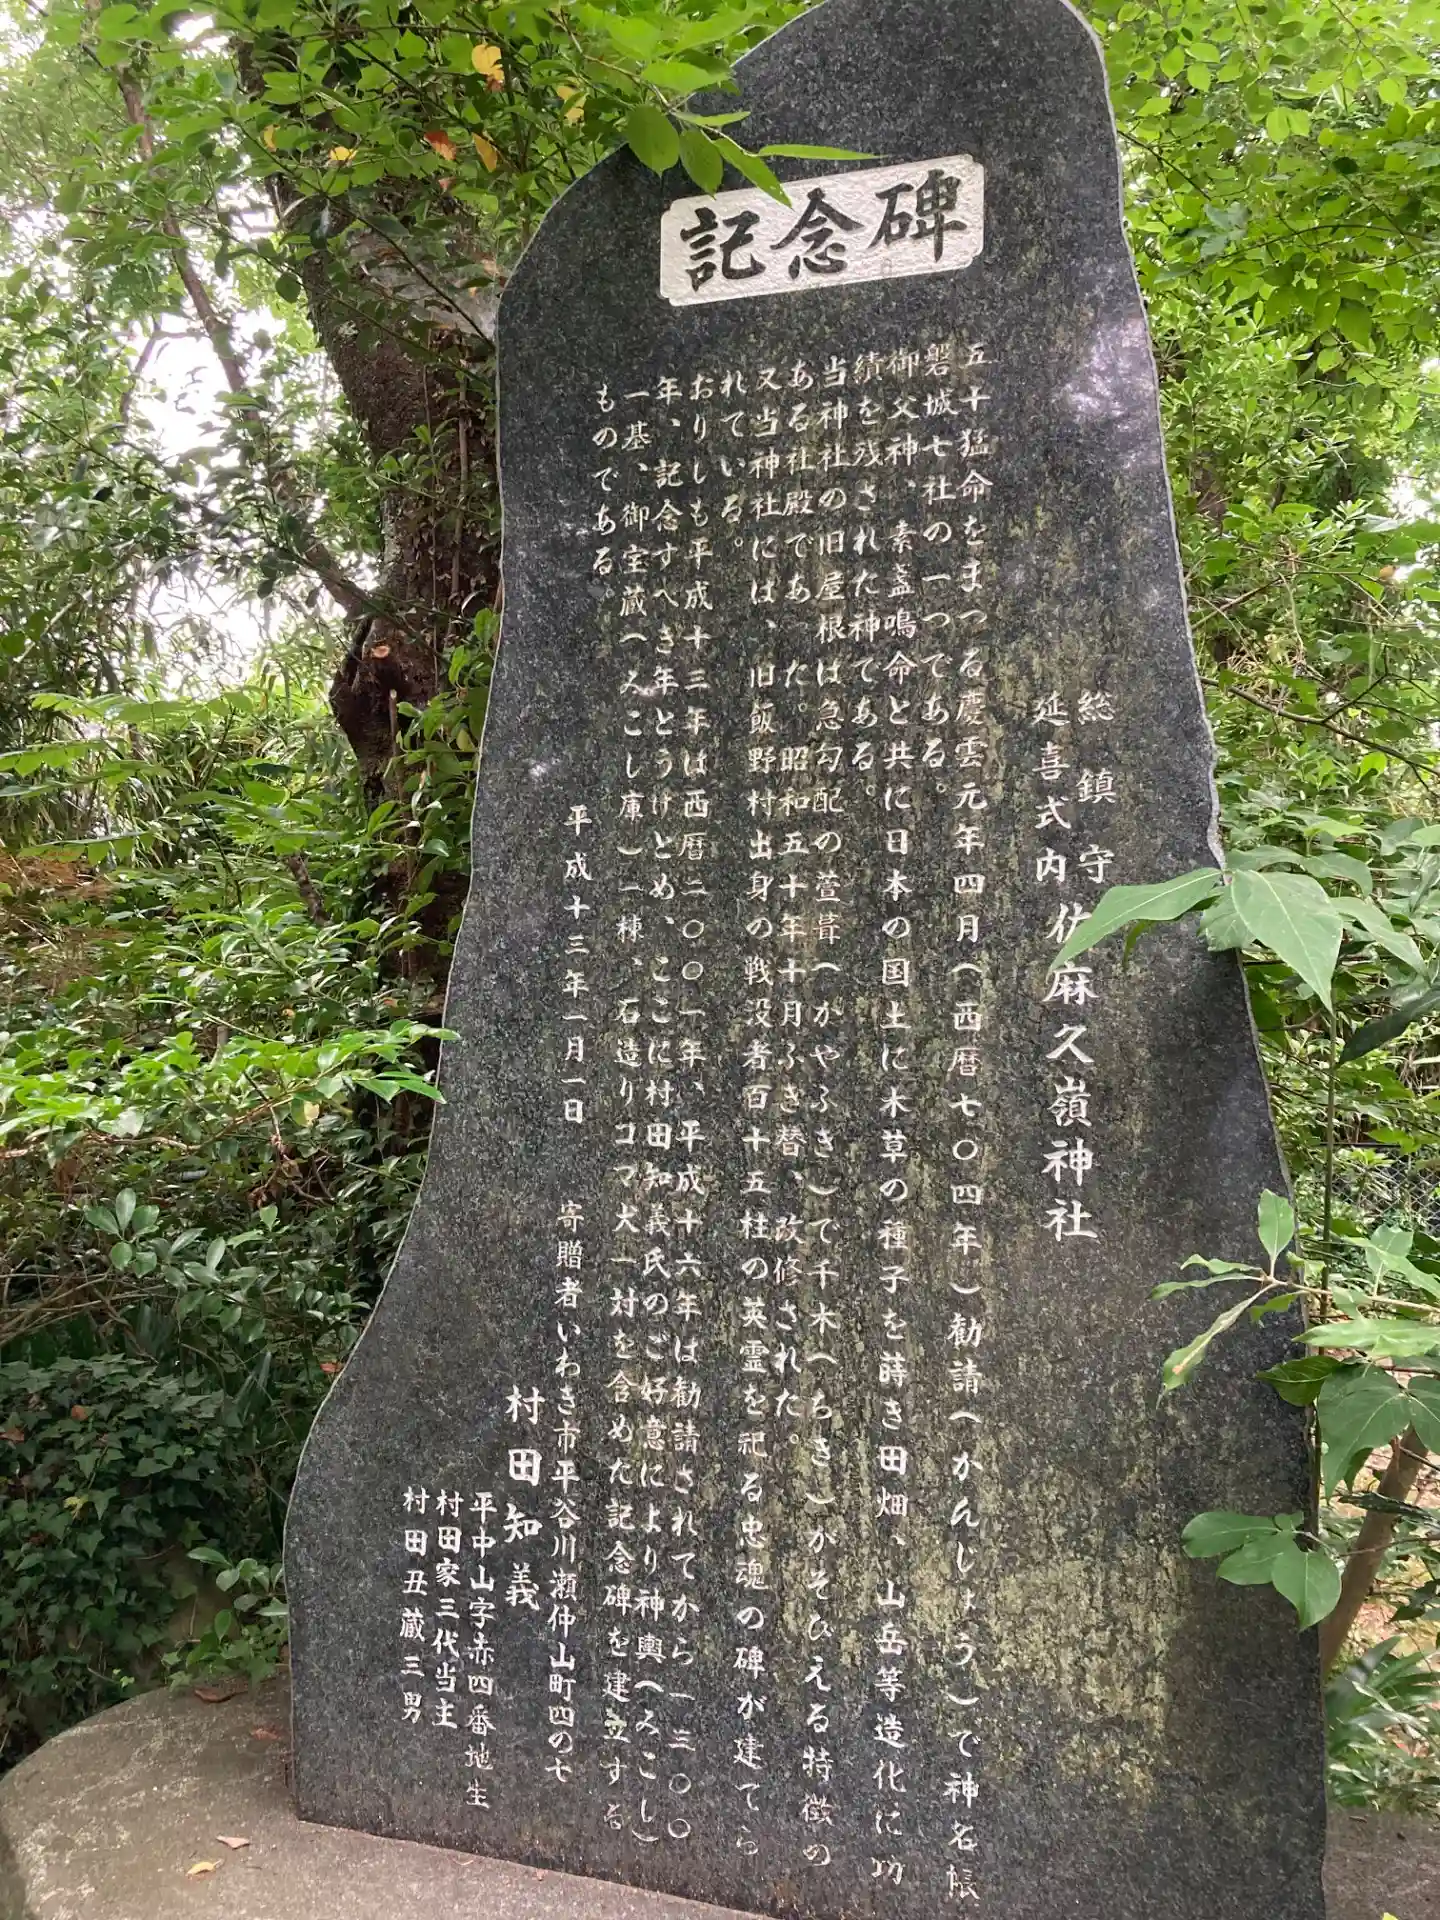 記念碑
総鎮守
延喜式内 佐麻久嶺神社
五十猛命をまつる慶雲元年四月(西暦七〇四年)勧請(かんじょう)で神名帳
磐城七社の一つである。
御父神、素盞鳴命と共に日本の国土に木草の種子を蒔き田畑、山岳等造化に功
績を残された神である。
当神社の旧屋根は急勾配の萱葺(かやふき)で千木(ちき)がそびえる特徴の
ある社殿であった。昭和五十年十月ふき替、改修された。
又当神社には、旧飯野村出身の戦没者百十五柱の英霊を祀る忠魂の碑が建てら
れている。
おりしも平成十三年は西暦二〇〇一年、平成十六年は勧請されてから一三〇〇
年、記念すべき年とうけとめ、ここに村田知義氏のご好意により神輿(みこし)
一基、御宝蔵(みこし庫)一棟、石造りコマ犬一対を含めた記念碑を建立する
ものである。
平成十三年一月一日
寄贈者いわき市平谷川瀬仲山町四の七
村田知義
平中山字赤四番地生
村田家三代当主
村田丑蔵三男